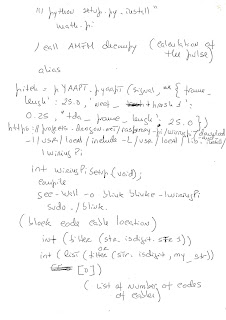 !!! python setup.py install"
math.pi
/ call AMFM decompy (calculation of
the pulse)
alias
pitch = pYAAPT.yaapt (signal, ** {frame_
length' : 25.0,
0.25, 'tda_frame_length': 25.0})
https://projects.drogon.net/raspberry-pi/wiringpi/download
-I/usr/local/include -L/usr/local/lib
lwiringPi
int wiringPiSetup (void);
compile
gcc -Wall -o blink blink.c -lwiringPi
sudo ./blink
(block code cable location)
int (filter (str.isdigit,
int (list (filter (str.isdigit, my_str))
[0])
(List of number of codes
of cables)